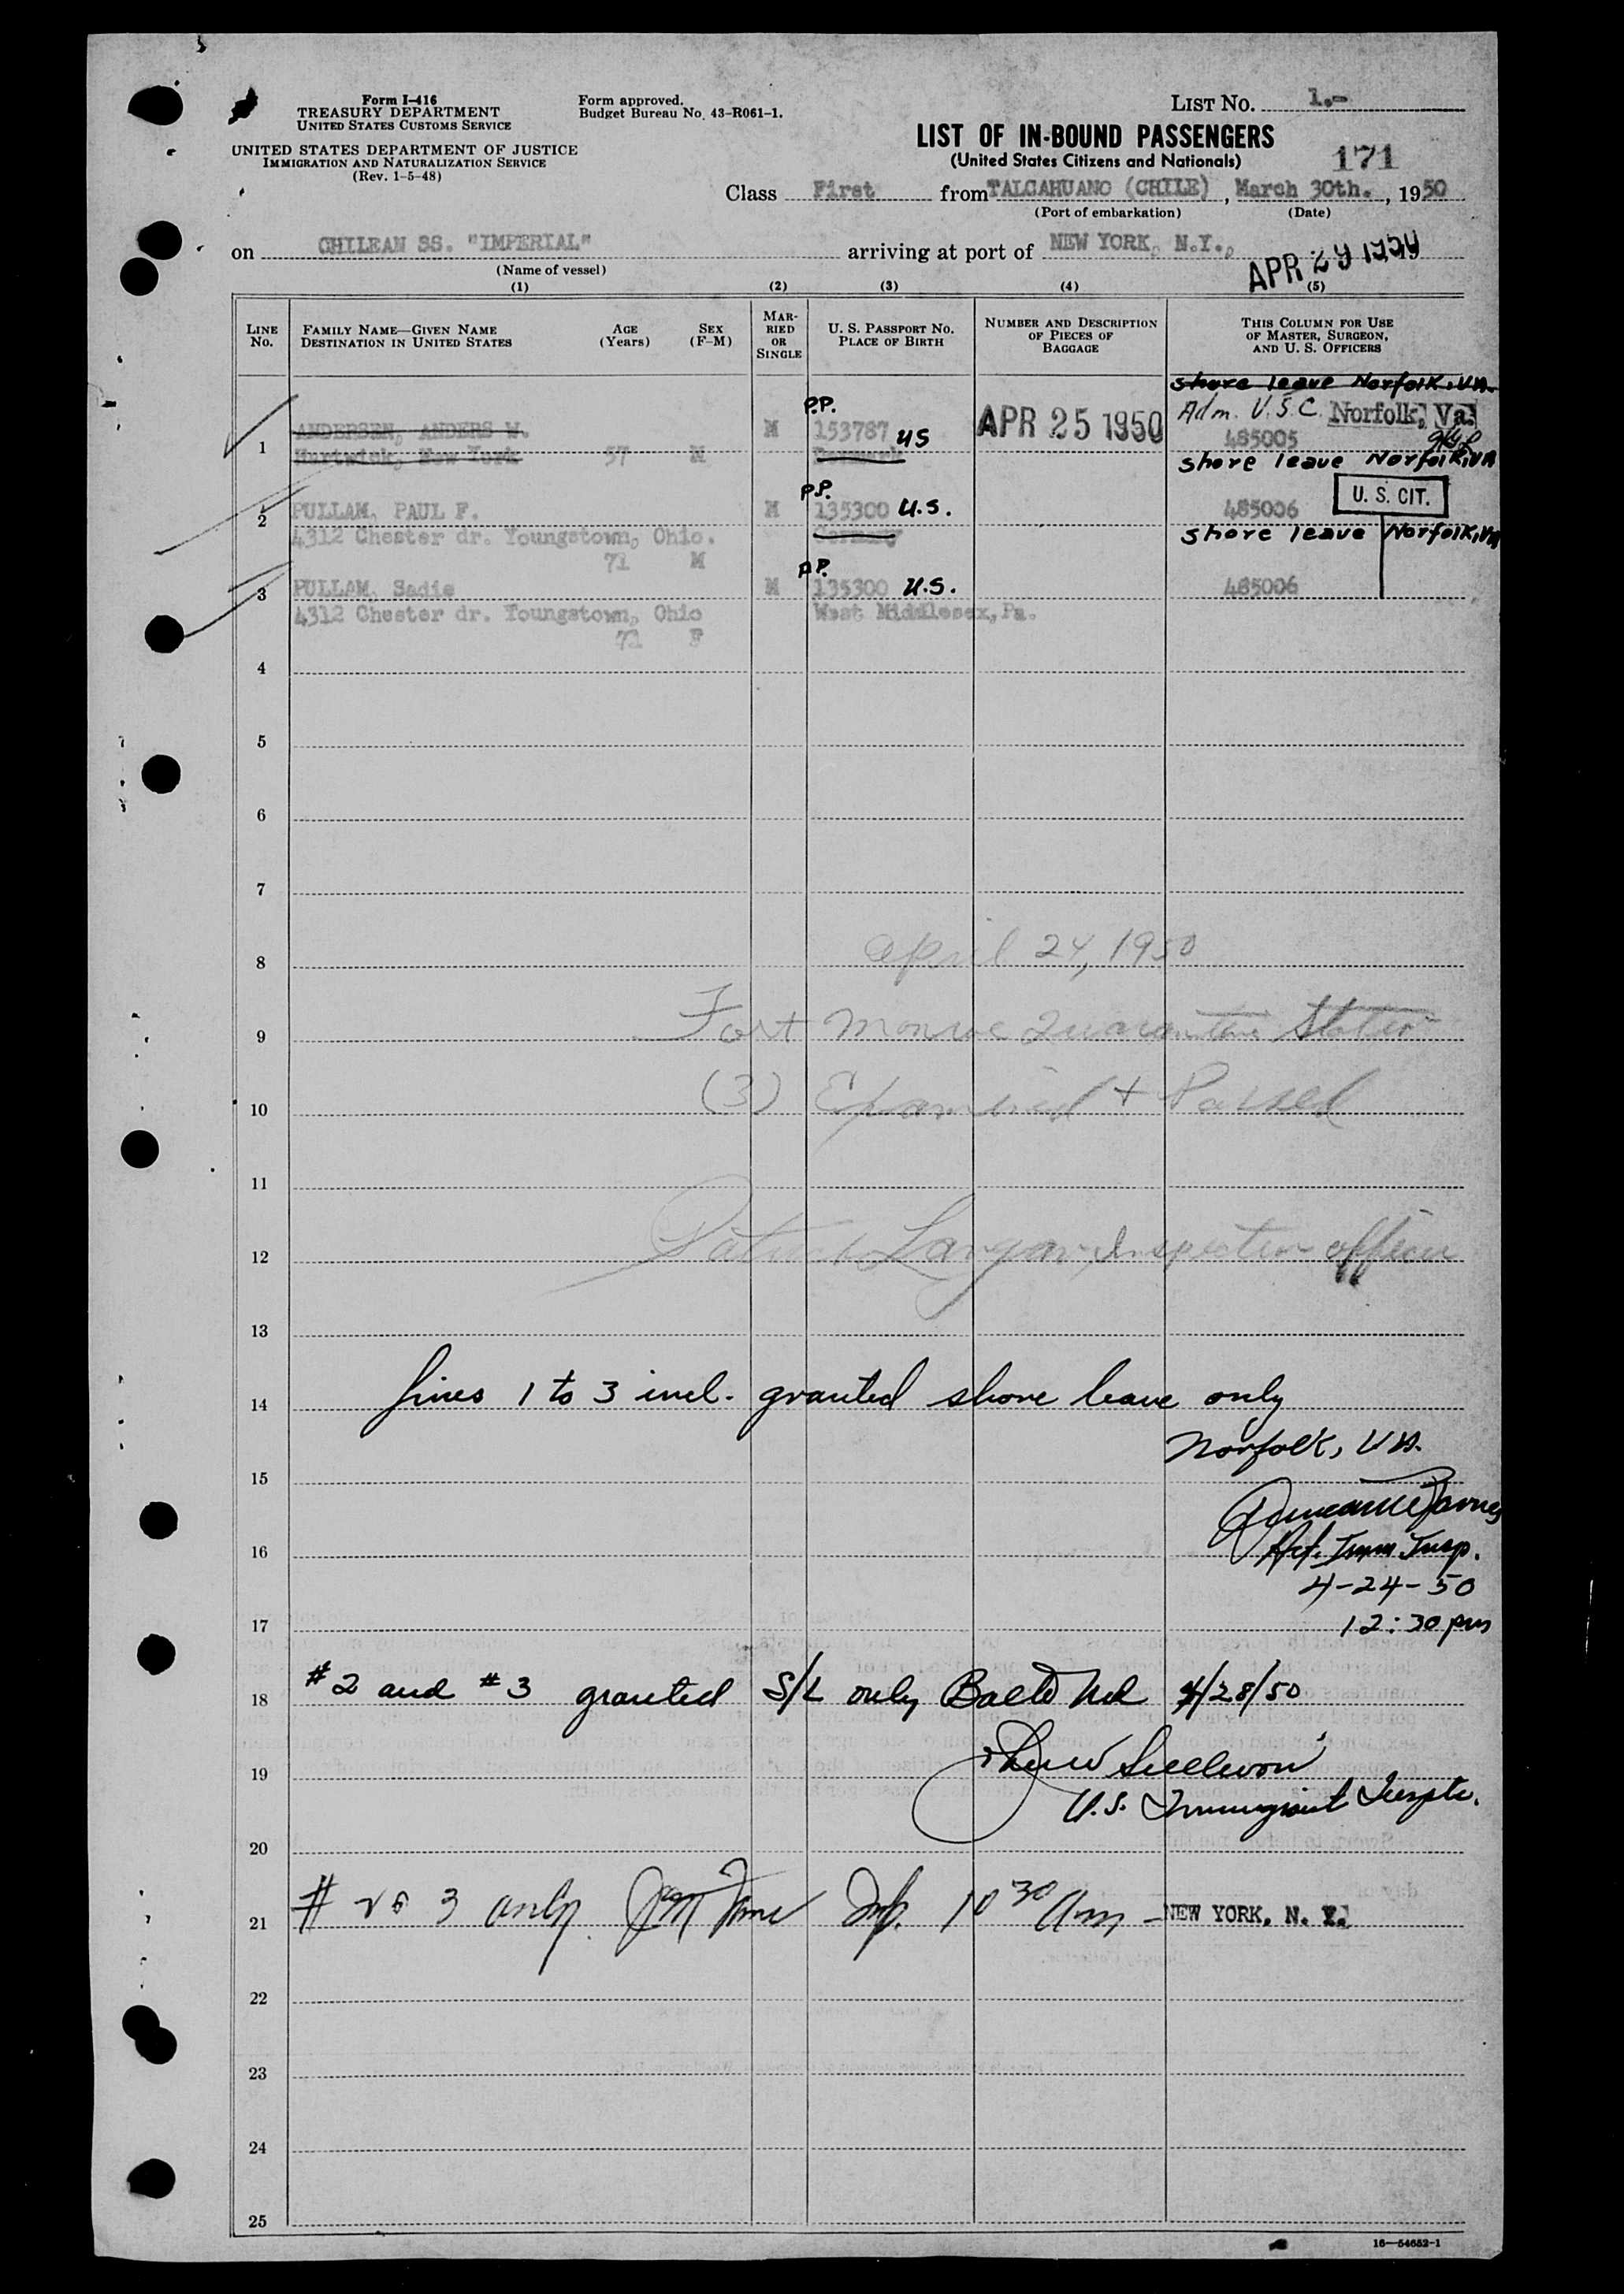 Form I-416
TREASURY DEPARTMENT
UNITED STATES CUSTOMS SERVICE
UNITED STATES DEPARTMENT OF JUSTICE
IMMIGRATION AND NATURALIZATION SERVICE
(Rev. 1-5-48)
Form approved.
Budget Bureau No. 43-R061-1.
LIST No. 1.-
LIST OF IN-BOUND PASSENGERS
(United States Citizens and Nationals)
171
Class First from TALCAHUANO (CHILE), March 30th., 1950
(Port of embarkation) (Date)
on CHILEAN SS. "IMPERIAL" arriving at port of NEW YORK, N.Y., APR 29 1950
(Name of vessel)
(1) (2) (3) (4) (5)
LINE No.
FAMILY NAME—GIVEN NAME
DESTINATION IN UNITED STATES
AGE (Years)
SEX (F-M)
MARRIED OR SINGLE
U. S. PASSPORT No.
PLACE OF BIRTH
NUMBER AND DESCRIPTION OF PIECES OF BAGGAGE
THIS COLUMN FOR USE OF MASTER, SURGEON, AND U. S. OFFICERS
shore leave Norfolk, VA.
P.P. APR 25 1950 Adm. U.S.C. Norfolk, Va.
1 ANDERSEN, ANDERS W. M 153787 US 485005
Hartwick, New York 57 M Denmark
shore leave Norfolk, VA
P.P. U. S. CIT.
2 PULLAM, PAUL F. M 135300 U.S. 485006
4312 Chester dr. Youngstown, Ohio. Germany
71 M
shore leave Norfolk, VA
P.P.
3 PULLAM, Sadie M 135300 U.S. 485006
4312 Chester dr. Youngstown, Ohio West Middlesex, Pa.
71 F
4
5
6
7
8 April 24, 1950
9 Fort Monroe Quarantine Station
10 (3) Examined + Passed
11
12 Patrick Langan, Inspection officer
13
14 Lines 1 to 3 incl. granted shore leave only
Norfolk, VA.
15
16 Imm Insp.
4-24-50
17 12:30 pm
18 #2 and #3 granted S/L only Balto Md 4/28/50
19 Sullivan
U.S. Immigrant Inspte.
20
21 # 2 & 3 only. Insp. 10 30 Am - NEW YORK, N. Y.
22
23
24
25
16—54652-1